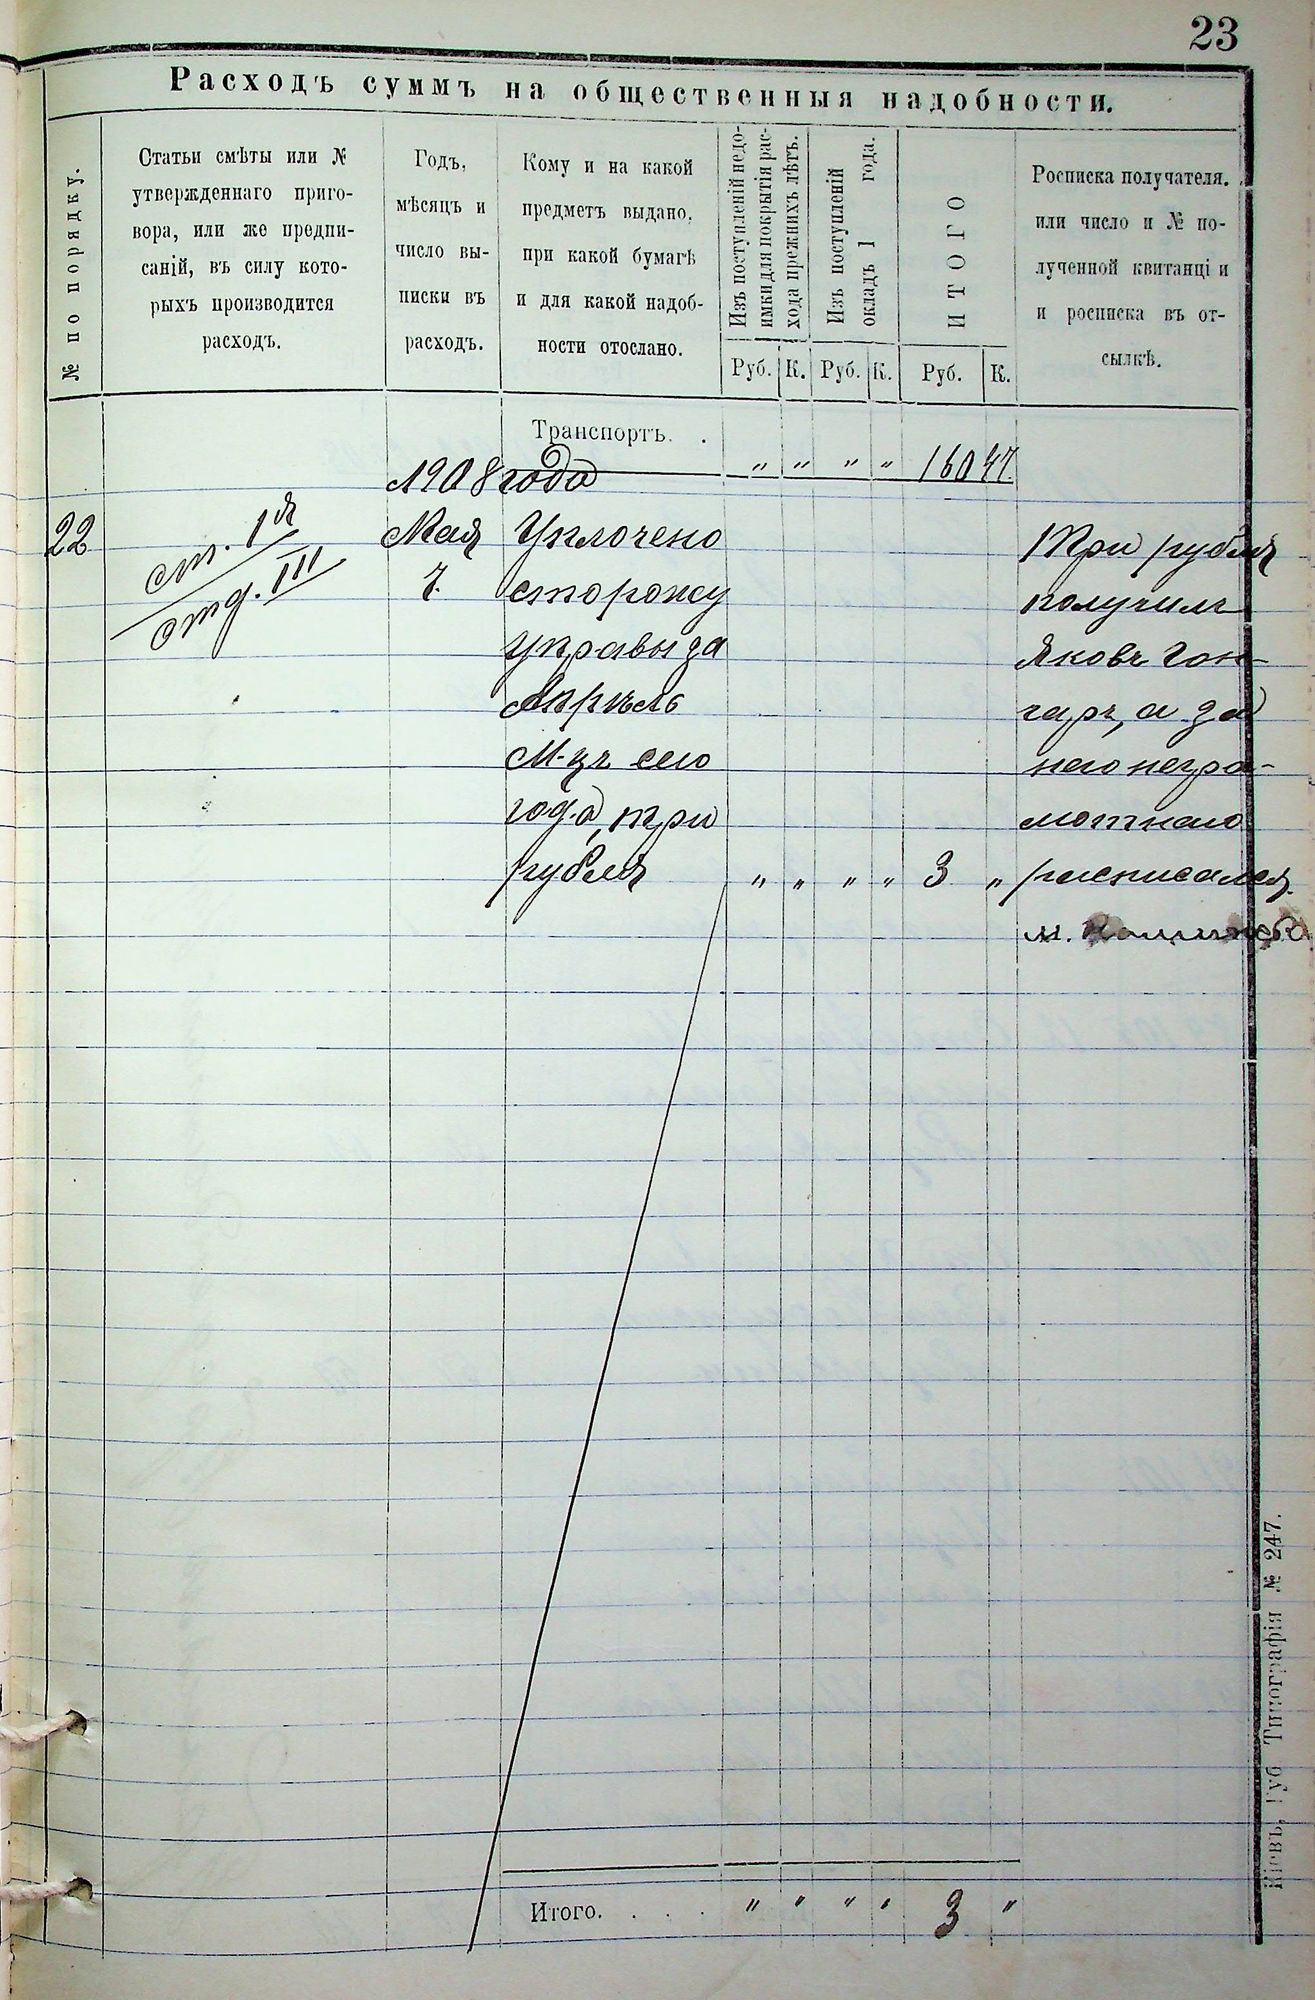 23
Расходъ суммъ на общественныя надобности.
№ по порядку.
Статьи смѣты или №
утвержденнаго приго-
вора, или же предпи-
саній, въ силу кото-
рыхъ производится
расходъ.
Годъ,
мѣсяцъ и
число вы-
писки въ
расходъ.
Кому и на какой
предметъ выдано,
при какой бумагѣ
и для какой надоб-
ности отослано.
Изъ поступленій недо-
имки для покрытія рас-
хода прежнихъ лѣтъ.
Изъ поступленій
окладъ 1 года.
ИТОГО
Росписка получателя,
или число и № по-
лученной квитанціи
и росписка въ от-
сылкѣ.
Руб. К. Руб. К. Руб. К.
Транспортъ. .
" " " " 160 47.
1908 года
22
ст. 1я
отд. III
Мая
7.
Уплочено
сторожу
управы за
Апрѣль
М-цъ сего
года, три
рубля
" " " " 3 "
Три рубля
получилъ
Яковъ Гон-
чаръ, а за
него негра-
мотнаго
расписался.
м.
Итого. . . .
" " " " 3 "
Кіевъ, Губ. Типографія № 247.